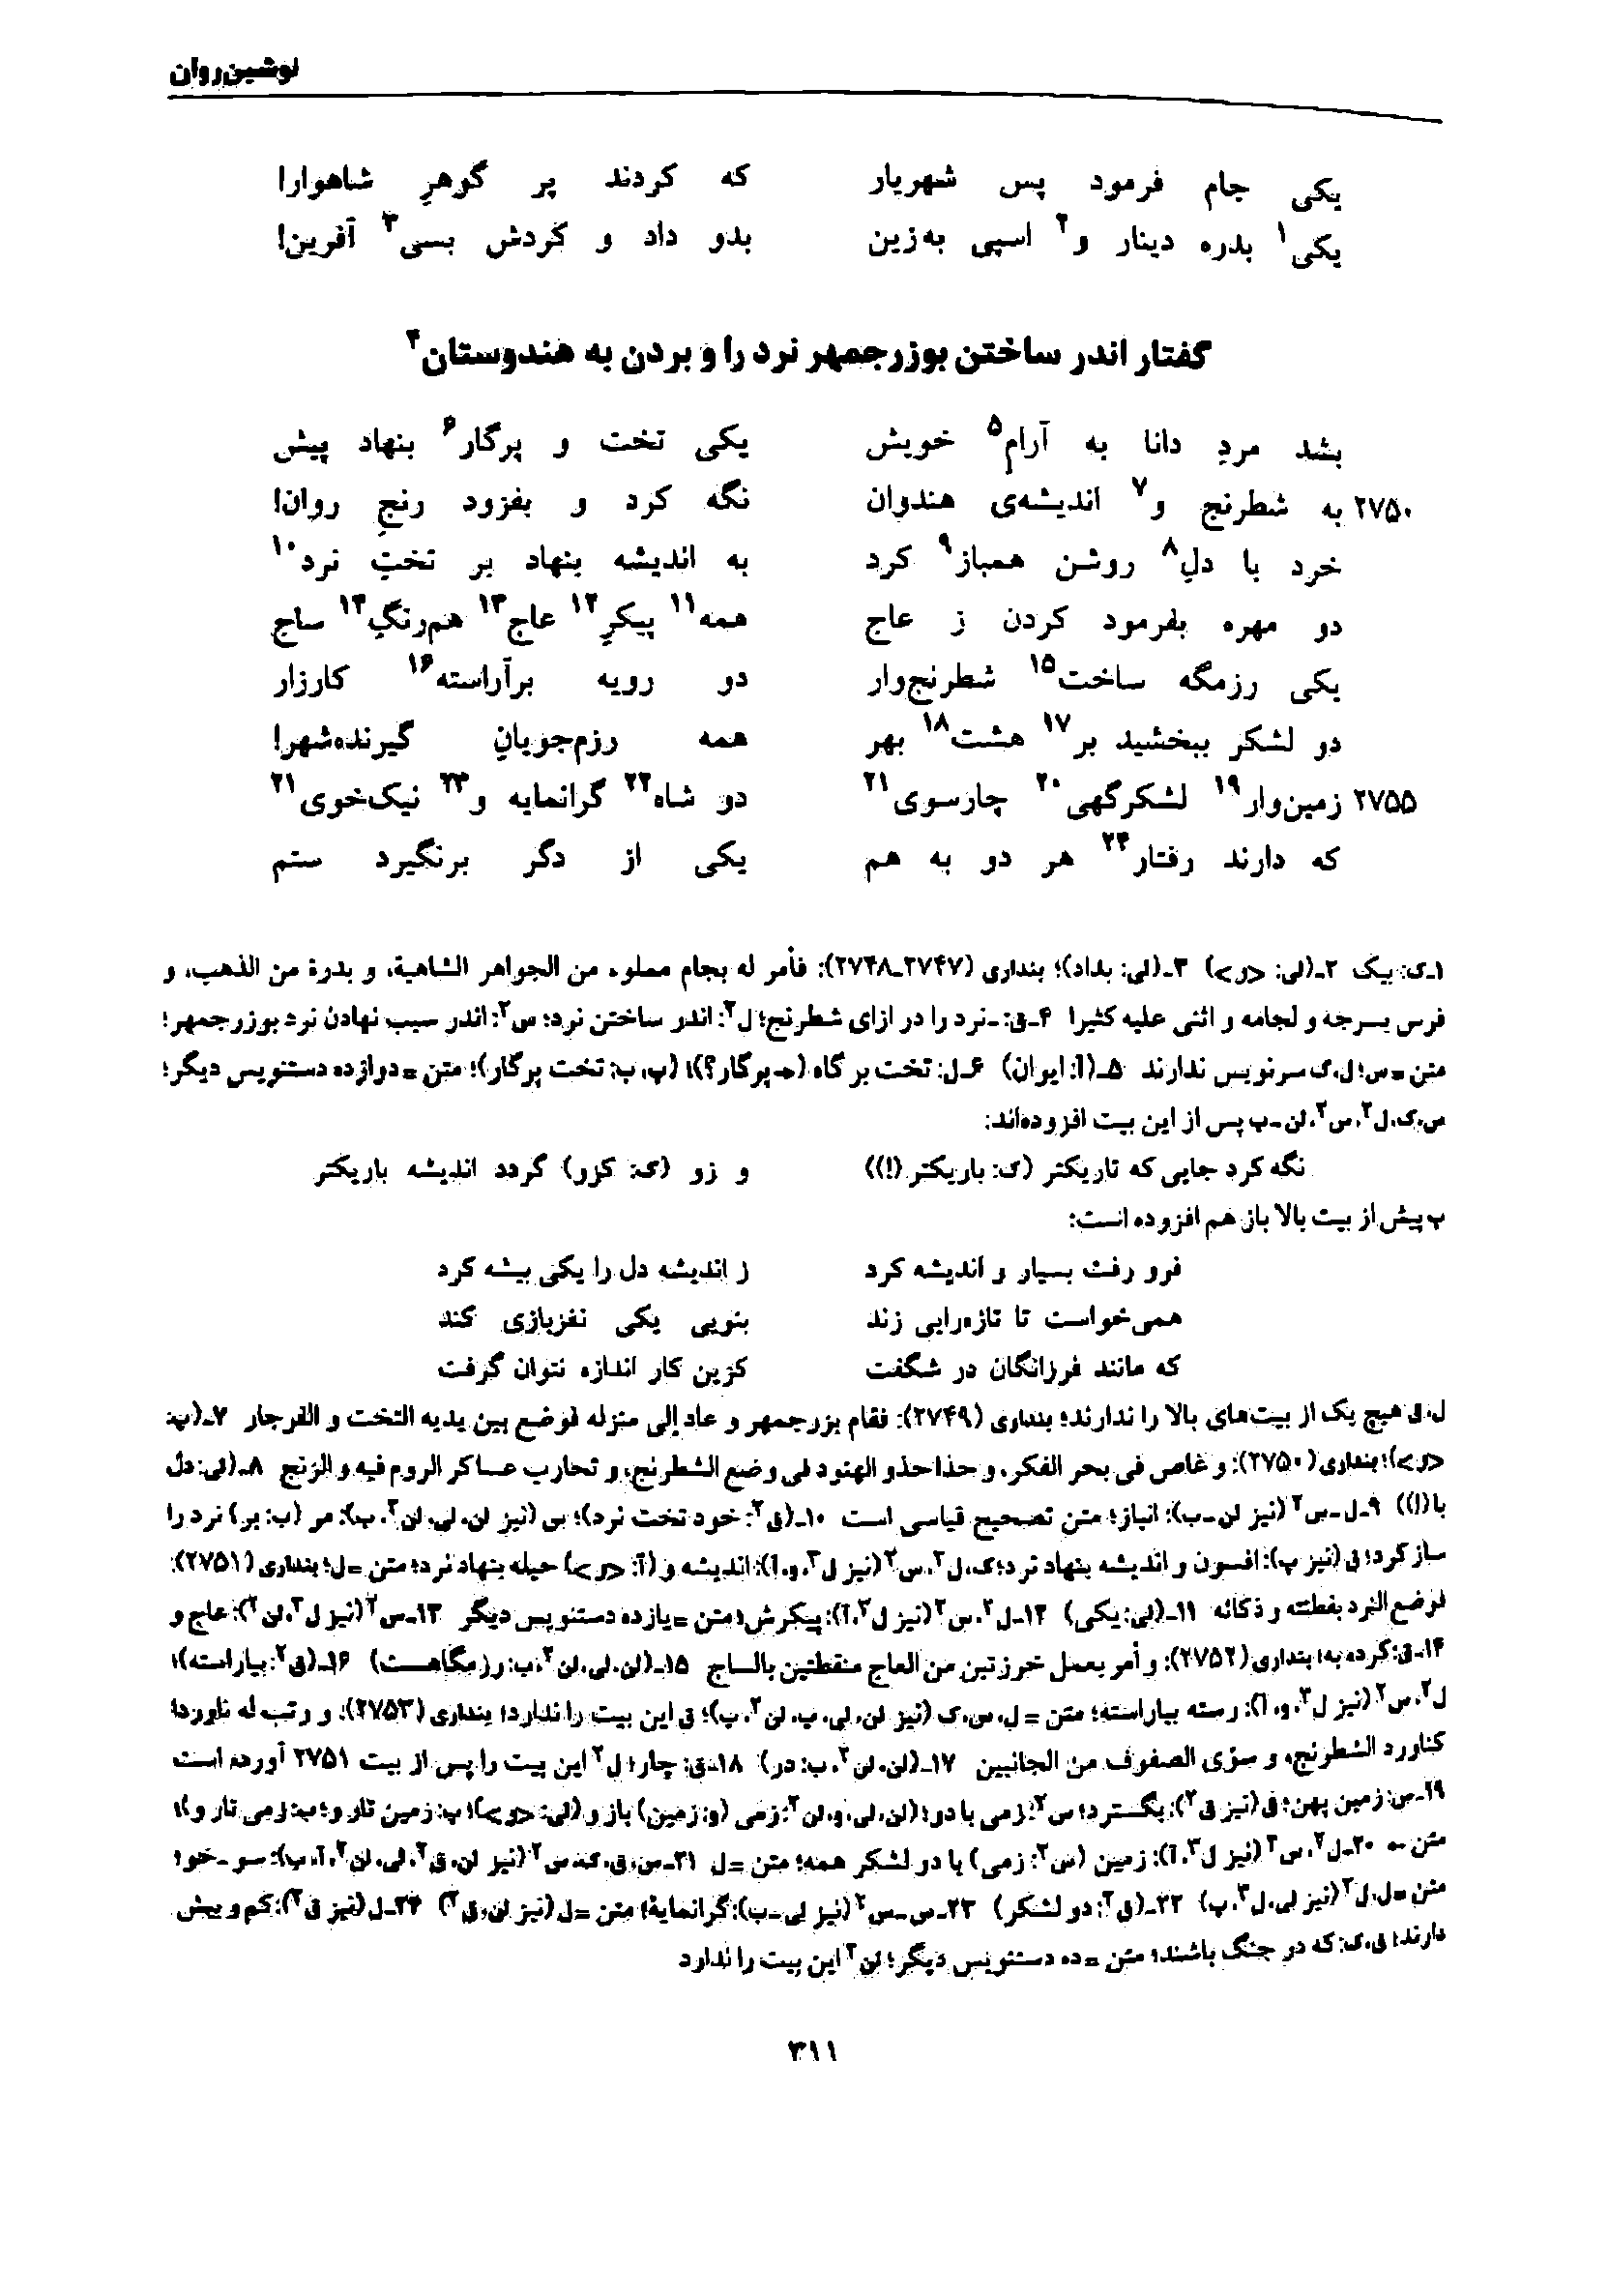 نوشین‌روان
یکی جام فرمود پس شهریار که کردند پر گوهرِ شاهوار!
یکی۱ بدره دینار و۲ اسپی به‌زین بدو داد و کردش بسی۳ آفرین!
گفتار اندر ساختن بوزرجمهر نرد را و بردن به هندوستان۴
بشد مردِ دانا به آرامِ۵ خویش یکی تخت و پرگار۶ بنهاد پیش
۲۷۵۰ به شطرنج و۷ اندیشه‌ی هندوان نگه کرد و بفزود رنجِ روان!
خرد با دلِ۸ روشن همباز۹ کرد به اندیشه بنهاد بر تختِ نرد۱۰
دو مهره بفرمود کردن ز عاج همه۱۱ پیکرِ۱۲ عاج۱۳ هم‌رنگِ۱۴ ساج
یکی رزمگه ساخت۱۵ شطرنج‌وار دو رویه برآراسته۱۶ کارزار
دو لشکر ببخشید بر۱۷ هشت۱۸ بهر همه رزم‌جویانِ گیرنده‌شهر!
۲۷۵۵ زمین‌وار۱۹ لشکرگهی۲۰ چارسوی۲۱ دو شاه۲۲ گرانمایه و۲۳ نیک‌خوی۲۱
که دارند رفتار۲۴ هر دو به هم یکی از دگر برنگیرد ستم
۱ـ ک: یک ۲ـ (لی: <و>) ۳ـ (لی: بداد)؛ بنداری (۲۷۴۷ـ۲۷۴۸): فأمر له بجام مملوء من الجواهر الشاهیة، و بدرة من الذهب، و
فرس بسرجه و لجامه و اثنی علیه کثیرا ۴ـ ق: ـ نرد را در ازای شطرنج؛ ل۲: اندر ساختن نرد؛ س۲: اندر سبب نهادن نرد بوزرجمهر؛
متن = س؛ ل، ک سرنویس ندارند ۵ـ (آ: ایوان) ۶ـ ل: تخت بر گاه (← پرگار؟)؛ (پ، ب: تخت پرگار)؛ متن = دوازده دستنویس دیگر؛
س، ک، ل۲، س۲، لن ـ ب پس از این بیت افزوده‌اند:
نگه کرد جایی که تاریکتر (ک: باریکتر (!)) و زو (ک: کزو) گردد اندیشه باریکتر
پ پیش از بیت بالا باز هم افزوده است:
فرو رفت بسیار و اندیشه کرد ز اندیشه دل را یکی بیشه کرد
همی‌خواست تا تازه‌رایی زند بنویی یکی نغزبازی کند
که مانند فرزانگان در شگفت کزین کار اندازه نتوان گرفت
ل، ق هیچ یک از بیت‌های بالا را ندارند؛ بنداری (۲۷۴۹): فقام بزرجمهر و عاد إلی منزله فوضع بین یدیه التخت و الفرجار ۷ـ (پ:
<و>)؛ بنداری (۲۷۵۰): و غاص فی بحر الفکر، و حذا حذو الهنود فی وضع الشطرنج، و تحارب عساکر الروم فیه و الزنج ۸ـ (لی: دل
با (!)) ۹ـ ل ـ س۲ (نیز لن ـ ب): انباز؛ متن تصحیح قیاسی است ۱۰ـ (ق۲: خود تخت نرد)؛ س (نیز لن، لی، لن۲، ب): مر (ب: بر) نرد را
ساز کرد؛ ق (نیز پ): افسون و اندیشه بنهاد نرد؛ ک، ل۲، س۲ (نیز ل۳، و، آ): اندیشه و (آ: <و>) حیله بنهاد نرد؛ متن = ل؛ بنداری (۲۷۵۱):
فوضع النرد بفطنته و ذکائه ۱۱ـ (لی: یکی) ۱۲ـ ل۲، س۲ (نیز ل۳، آ): پیکرش؛ متن = یازده دستنویس دیگر ۱۳ـ س۲ (نیز ل۳، لن۲): عاج و
۱۴ـ ق: کرده به؛ بنداری (۲۷۵۲): و أمر بعمل خرزتین من العاج منقطتین بالساج ۱۵ـ (لن، لی، لن۲، ب: رزمگاهست) ۱۶ـ (ق۲: بیاراسته)؛
ل۲، س۲ (نیز ل۳، و، آ): رسته بیاراسته؛ متن = ل، س، ک (نیز لن، لی، پ، لن۲، ب)؛ ق این بیت را ندارد؛ بنداری (۲۷۵۳): و رتب له ناوردا
کناورد الشطرنج، و سوّی الصفوف من الجانبین ۱۷ـ (لن، لن۲، ب: در) ۱۸ـ ق: چار؛ ل۲ این بیت را پس از بیت ۲۷۵۱ آورده است
۱۹ـ س: زمین پهن؛ ق (نیز ق۲): بگسترد؛ س۲: زمی با دو؛ (لن، لی، و، لن۲: زمی (و: زمین) باز و (لی: <و>)؛ پ: زمین تار و؛ ب: زمی تار و)؛
متن ← ۲۰ـ ل۲، س۲ (نیز ل۳، آ): زمین (س۲: زمی) با دو لشکر همه؛ متن = ل ۲۱ـ س، ق، ک، س۲ (نیز لن، ق۲، لی، لن۲، آ، ب): سو ـ خو؛
متن = ل، ل۲ (نیز لی، ل۳، پ) ۲۲ـ (ق۲: دو لشکر) ۲۳ـ س ـ س۲ (نیز لی ـ ب): گرانمایهٔ؛ متن = ل (نیز لن، ق۲) ۲۴ـ ل (نیز ق۲): کم و بیش
دارند؛ ق، ک: که در جنگ باشند؛ متن = ده دستنویس دیگر؛ لن۲ این بیت را ندارد
۳۱۱